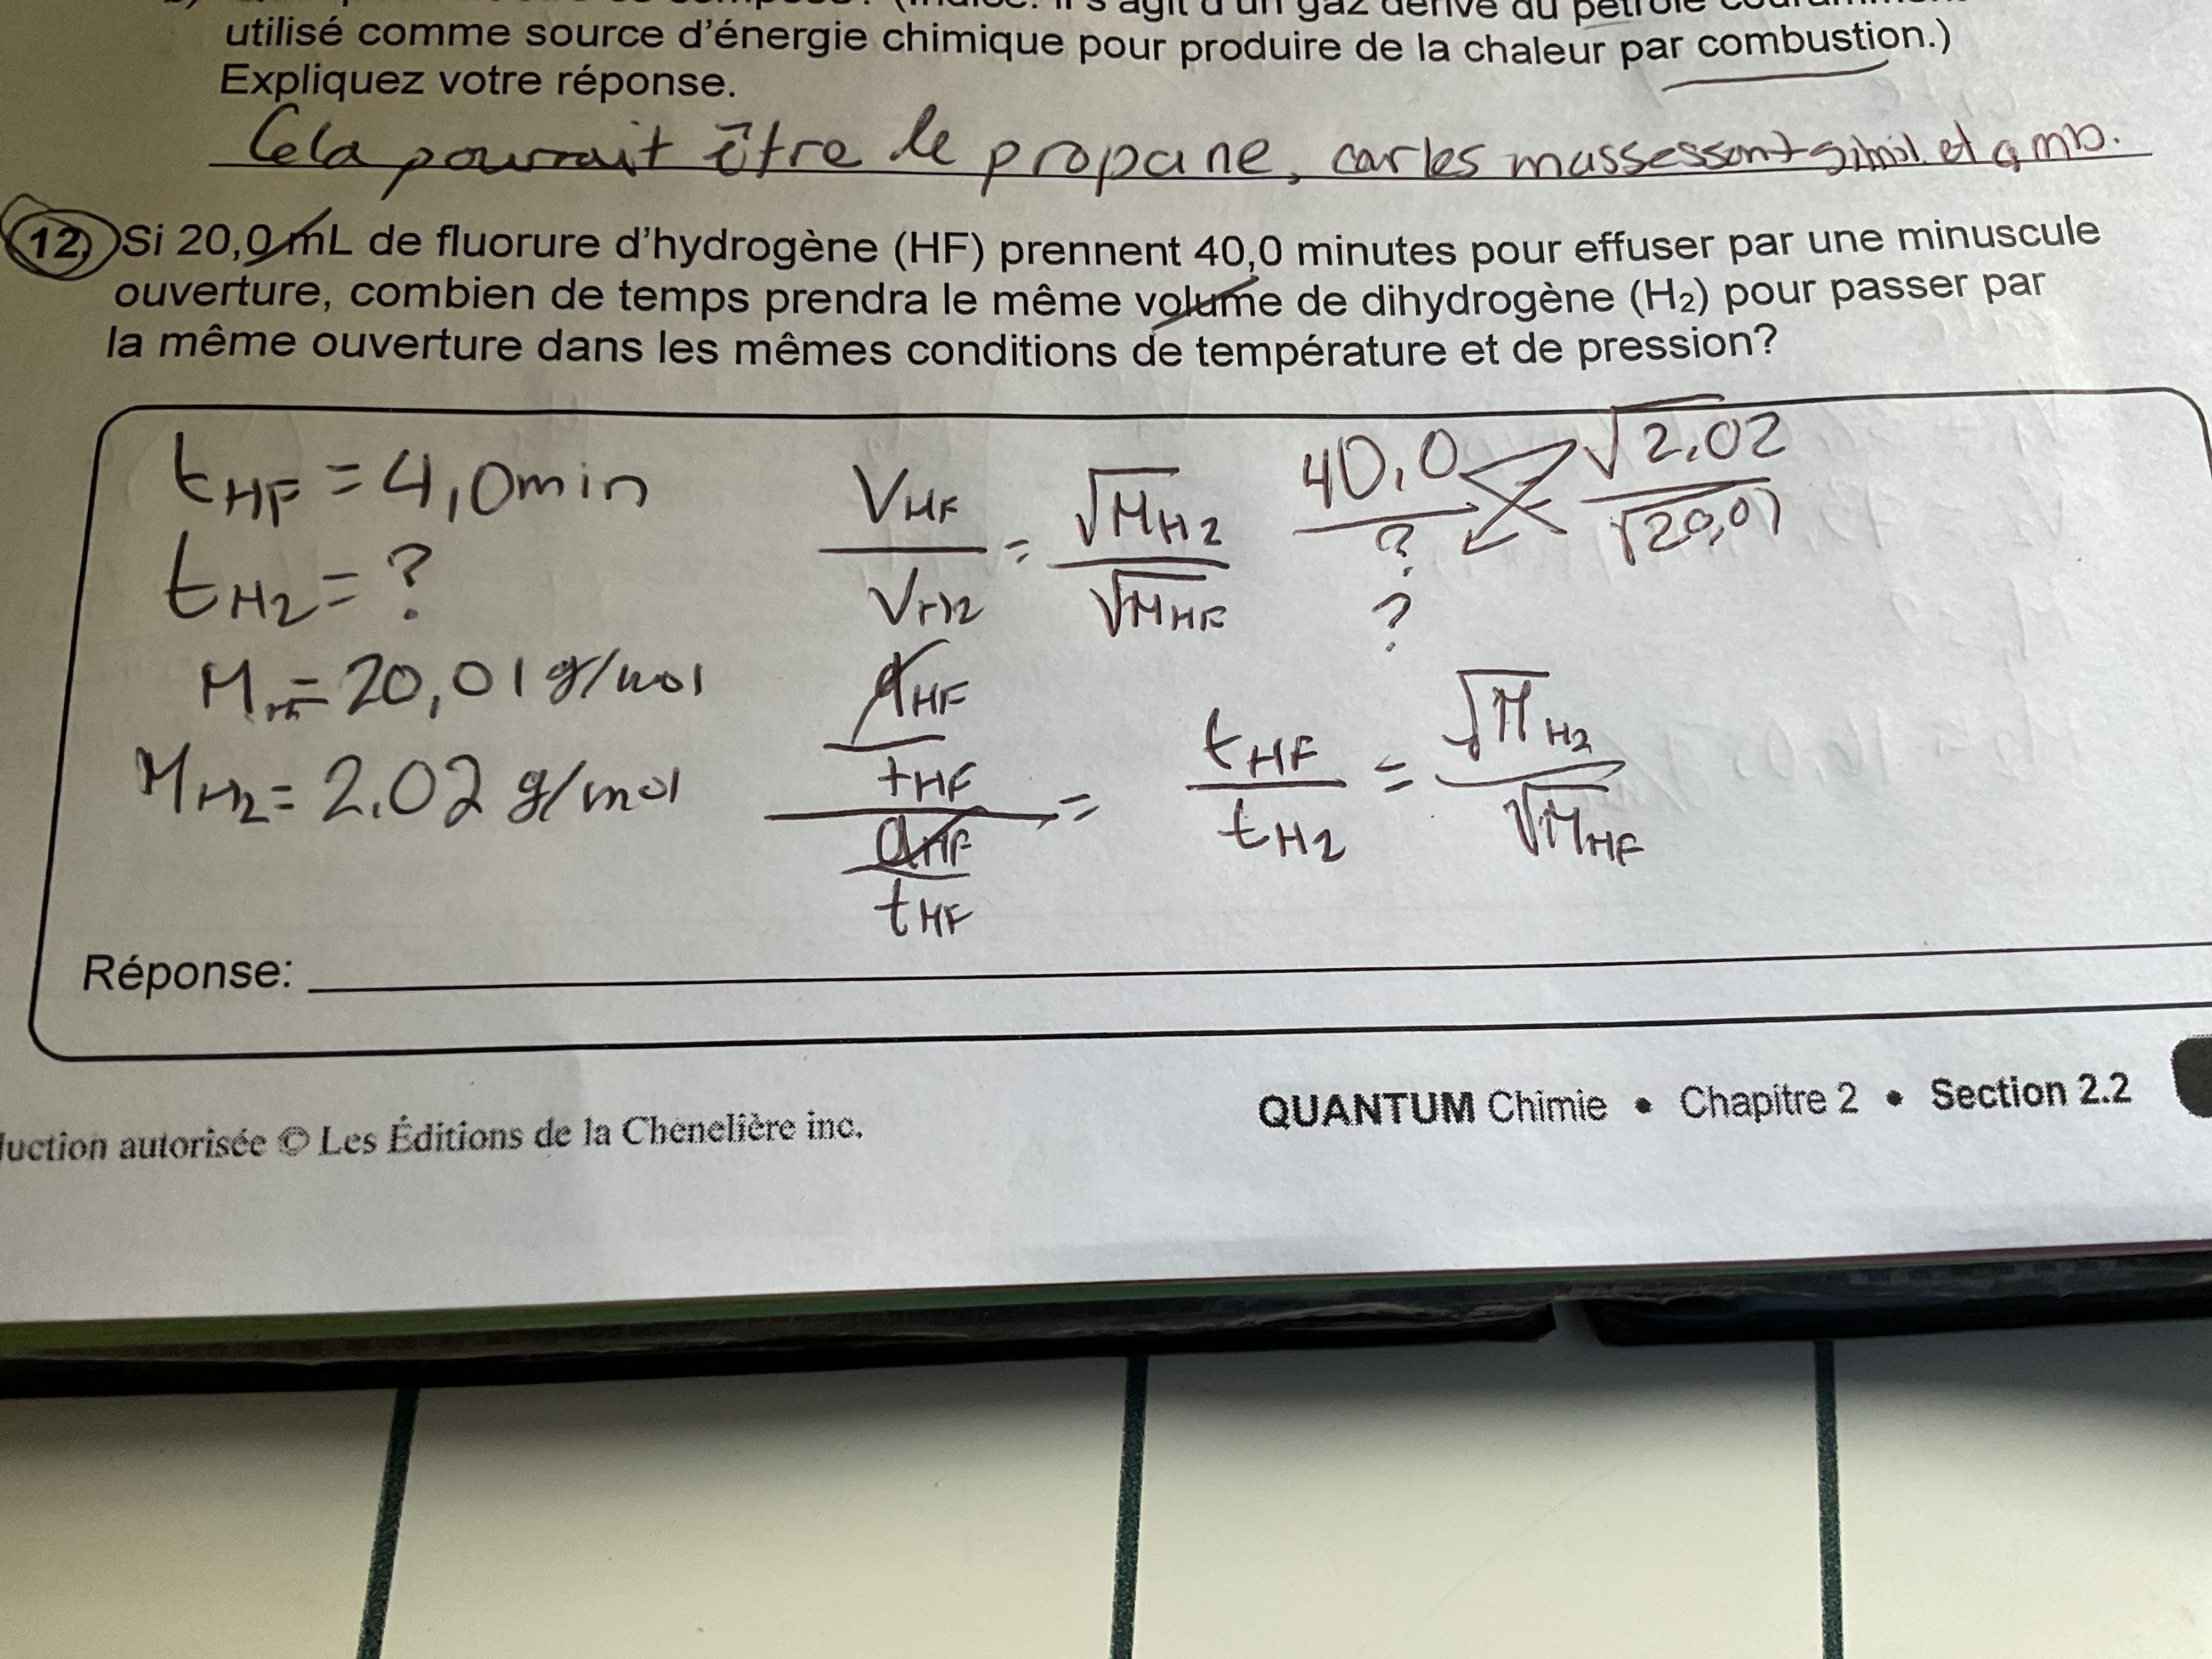 utilisé comme source d'énergie chimique pour produire de la chaleur par combustion.)
Expliquez votre réponse.
Cela pourrait être le propane, car les masses sont simil. et
12. Si 20,0 mL de fluorure d'hydrogène (HF) prennent 40,0 minutes pour effuser par une minuscule
ouverture, combien de temps prendra le même volume de dihydrogène (H₂) pour passer par
la même ouverture dans les mêmes conditions de température et de pression?
t HF = 4,0 min
t H2 = ?
M HF = 20,01 g/mol
M H2 = 2.02 g/mol
V HF / V H2 = √M H2 / √M HF
d HF / t HF / d HF / t HF =
40,0 / ? √2,02 / √20,01
?
t HF / t H2 = √M H2 / √M HF
Réponse:
duction autorisée © Les Éditions de la Chenelière inc.
QUANTUM Chimie • Chapitre 2 • Section 2.2